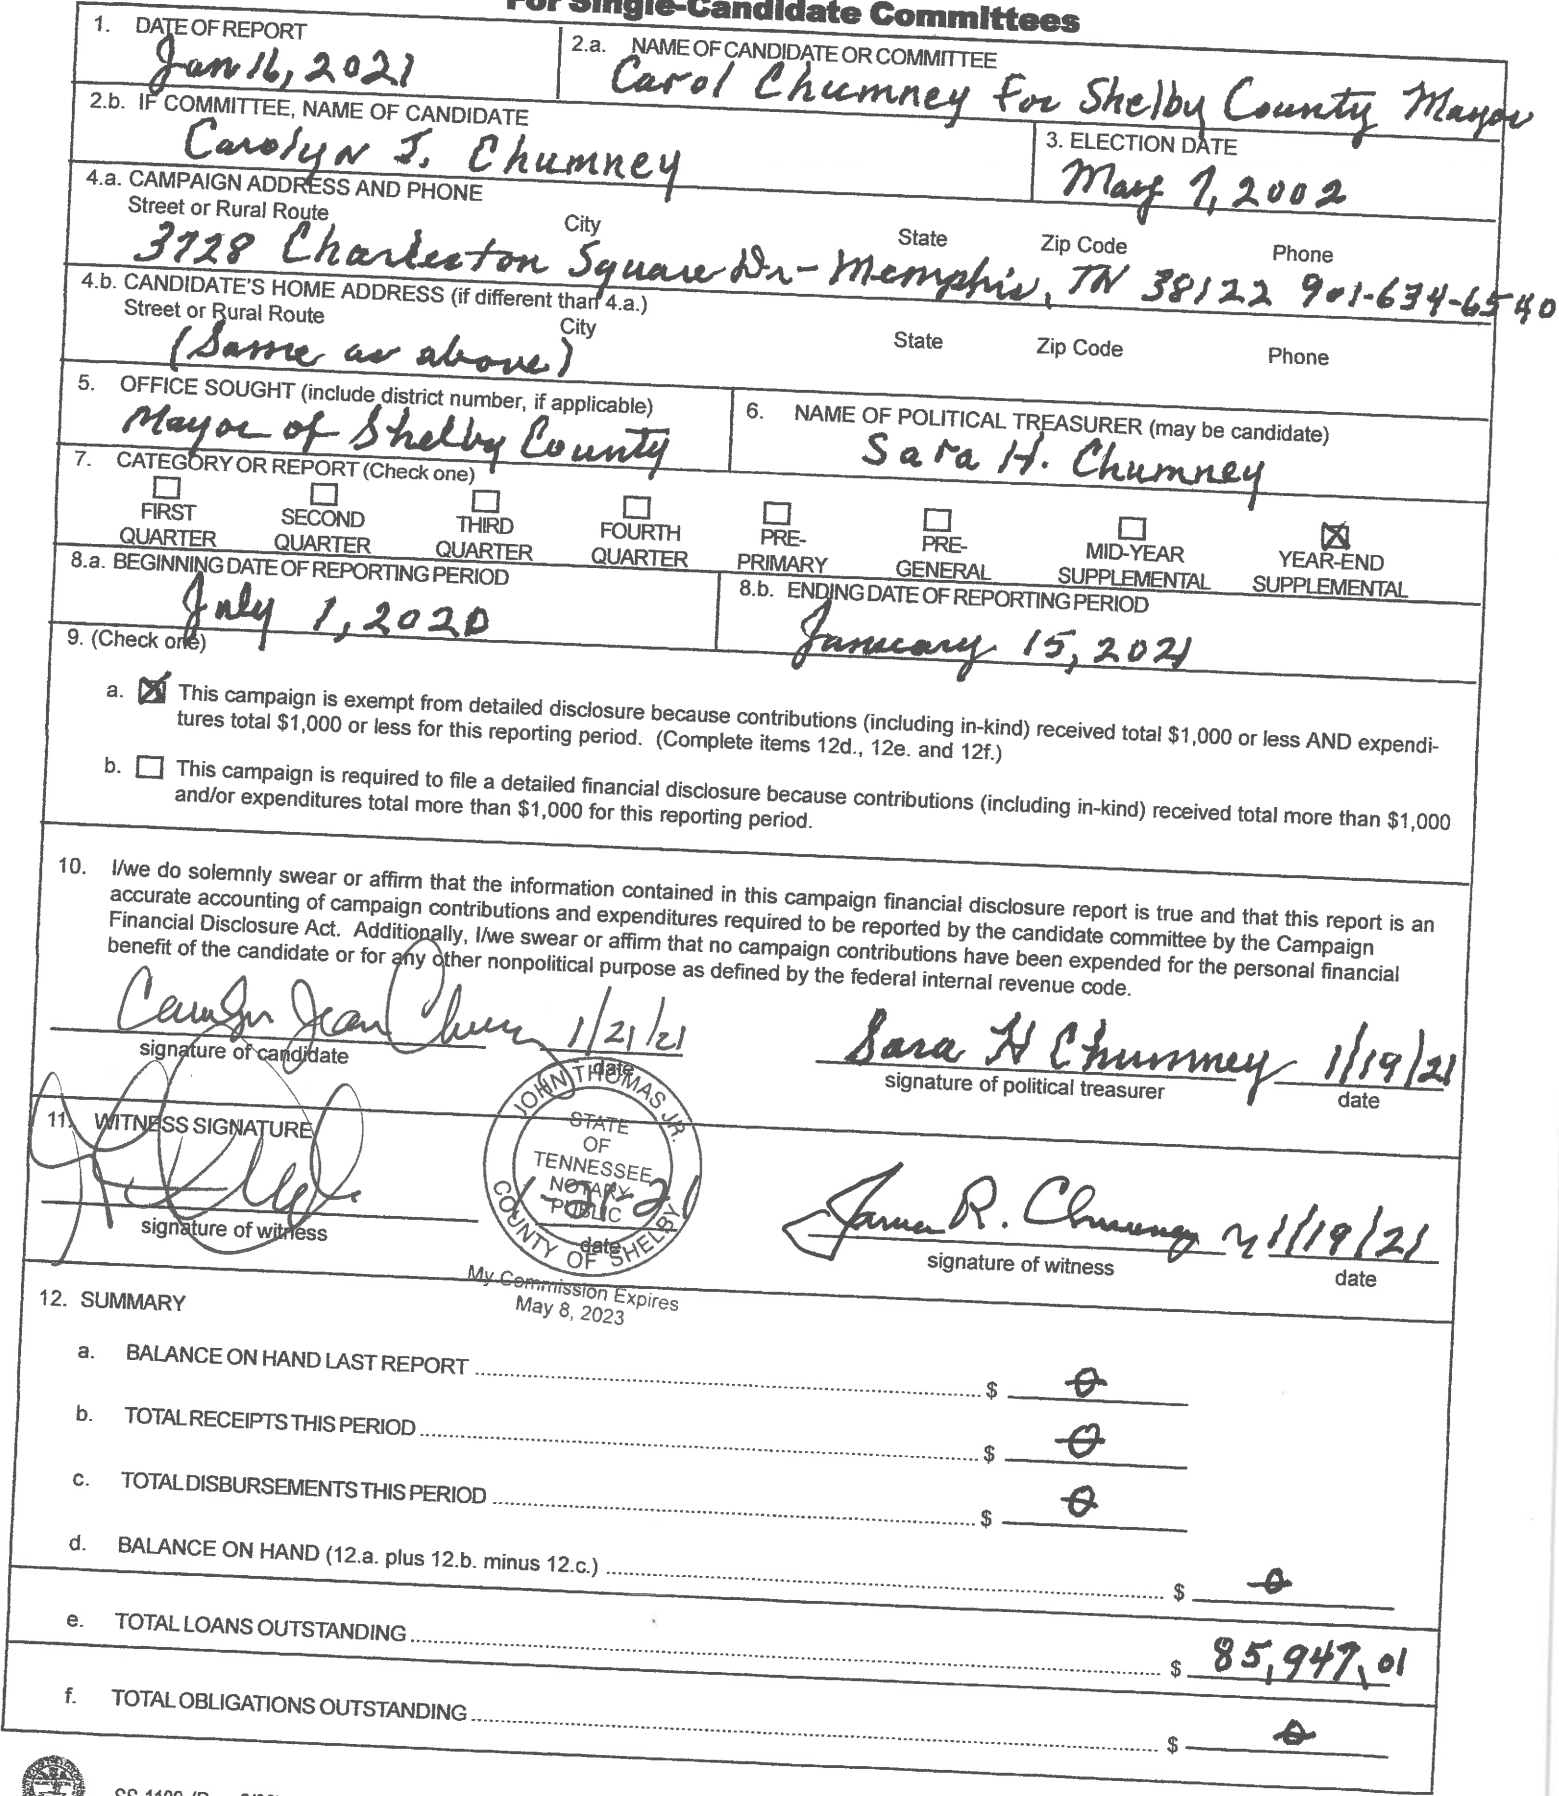 For Single-Candidate Committees
1. DATE OF REPORT
Jan 16, 2021
2.a. NAME OF CANDIDATE OR COMMITTEE
Carol Chumney For Shelby County Mayor
2.b. IF COMMITTEE, NAME OF CANDIDATE
Carolyn J. Chumney
3. ELECTION DATE
May 7, 2002
4.a. CAMPAIGN ADDRESS AND PHONE
Street or Rural Route City State Zip Code Phone
3728 Charleston Square Dr - Memphis, TN 38122 901-634-6540
4.b. CANDIDATE'S HOME ADDRESS (if different than 4.a.)
Street or Rural Route City State Zip Code Phone
(Same as above)
5. OFFICE SOUGHT (include district number, if applicable)
Mayor of Shelby County
6. NAME OF POLITICAL TREASURER (may be candidate)
Sara H. Chumney
7. CATEGORY OR REPORT (Check one)
FIRST QUARTER
SECOND QUARTER
THIRD QUARTER
FOURTH QUARTER
PRE-PRIMARY
PRE-GENERAL
MID-YEAR SUPPLEMENTAL
YEAR-END SUPPLEMENTAL
8.a. BEGINNING DATE OF REPORTING PERIOD
July 1, 2020
8.b. ENDING DATE OF REPORTING PERIOD
January 15, 2021
9. (Check one)
a. This campaign is exempt from detailed disclosure because contributions (including in-kind) received total $1,000 or less AND expendi-
tures total $1,000 or less for this reporting period. (Complete items 12d., 12e. and 12f.)
b. This campaign is required to file a detailed financial disclosure because contributions (including in-kind) received total more than $1,000
and/or expenditures total more than $1,000 for this reporting period.
10. I/we do solemnly swear or affirm that the information contained in this campaign financial disclosure report is true and that this report is an
accurate accounting of campaign contributions and expenditures required to be reported by the candidate committee by the Campaign
Financial Disclosure Act. Additionally, I/we swear or affirm that no campaign contributions have been expended for the personal financial
benefit of the candidate or for any other nonpolitical purpose as defined by the federal internal revenue code.
Carolyn Jean Chumney 1/21/21
signature of candidate date
Sara H Chumney 1/19/21
signature of political treasurer date
11. WITNESS SIGNATURE
1-21-21
signature of witness date
James R. Chumney 1/19/21
signature of witness date
JOHN THOMAS JR.
STATE
OF
TENNESSEE
NOTARY
PUBLIC
COUNTY OF SHELBY
My Commission Expires
May 8, 2023
12. SUMMARY
a. BALANCE ON HAND LAST REPORT $ 0
b. TOTAL RECEIPTS THIS PERIOD $ 0
c. TOTAL DISBURSEMENTS THIS PERIOD $ 0
d. BALANCE ON HAND (12.a. plus 12.b. minus 12.c.) $ 0
e. TOTAL LOANS OUTSTANDING $ 85,947.01
f. TOTAL OBLIGATIONS OUTSTANDING $ 0